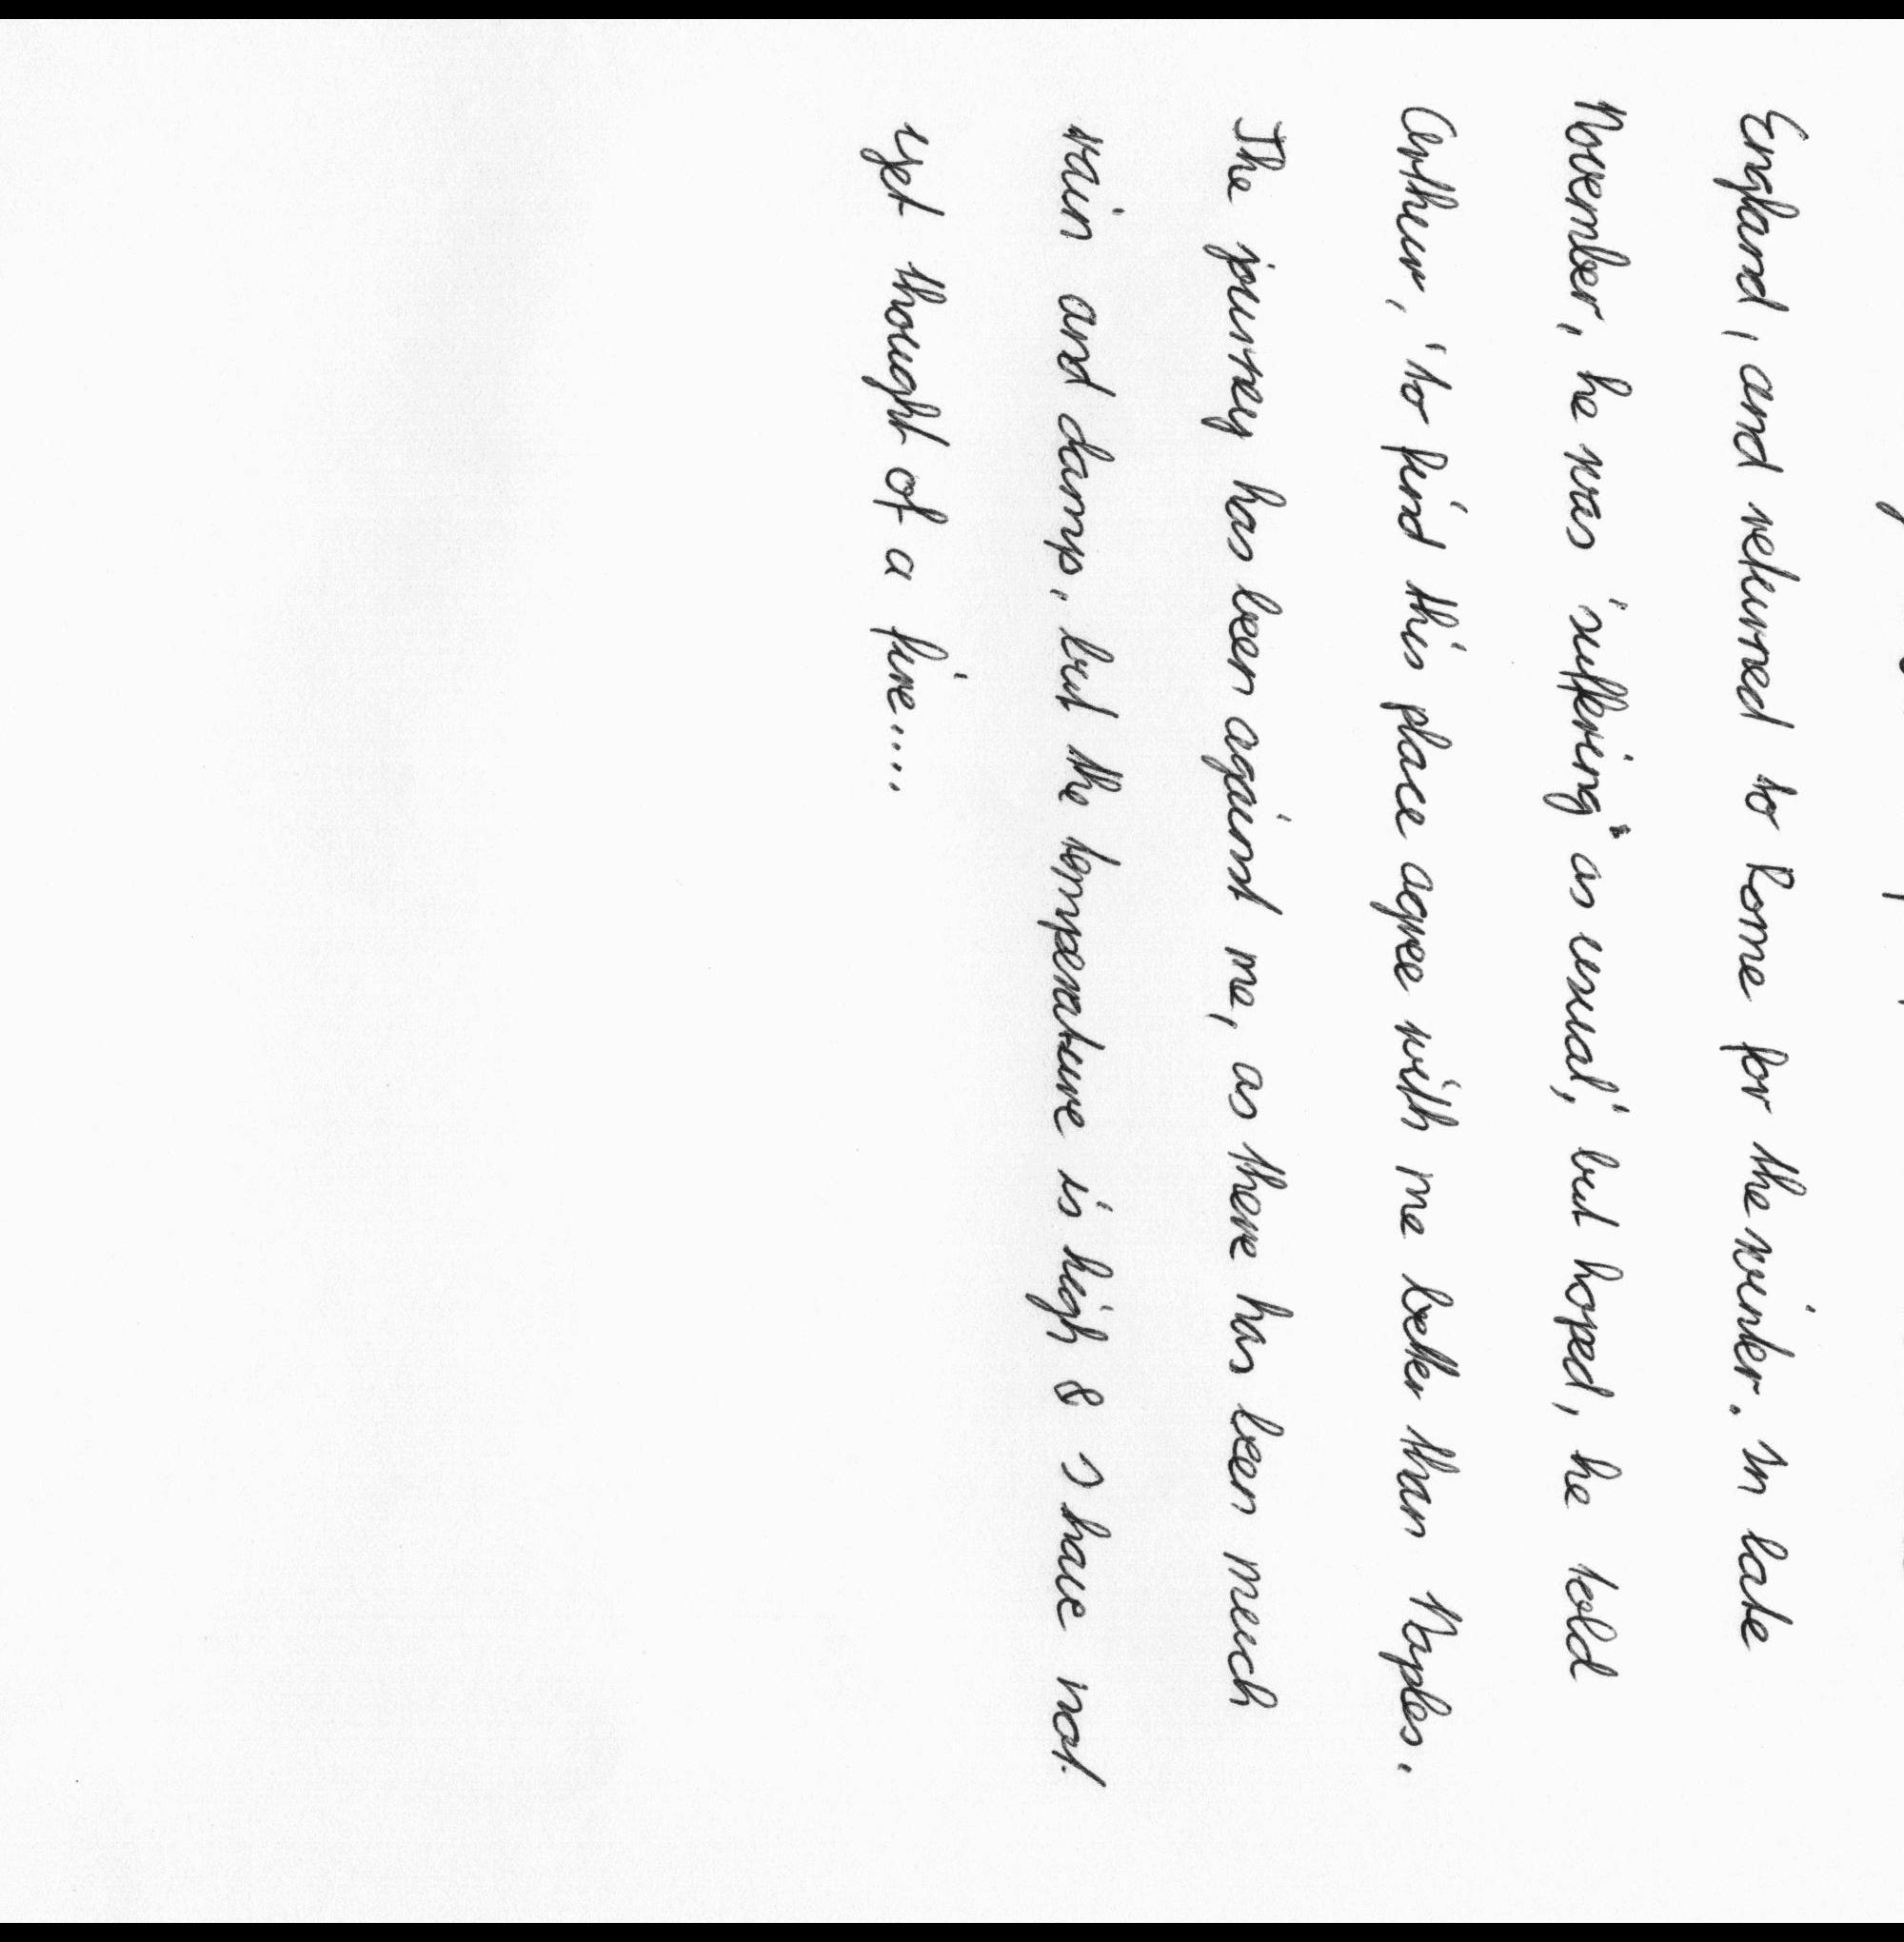 England, and returned to Rome for the winter. In late
November, he was "suffering" as usual," but hoped, he told
Arthur, "to find this place agree with me better than Naples.
The journey has been against me, as there has been much
rain and damp, but the temperature is high & I have not
yet thought of a fire.....